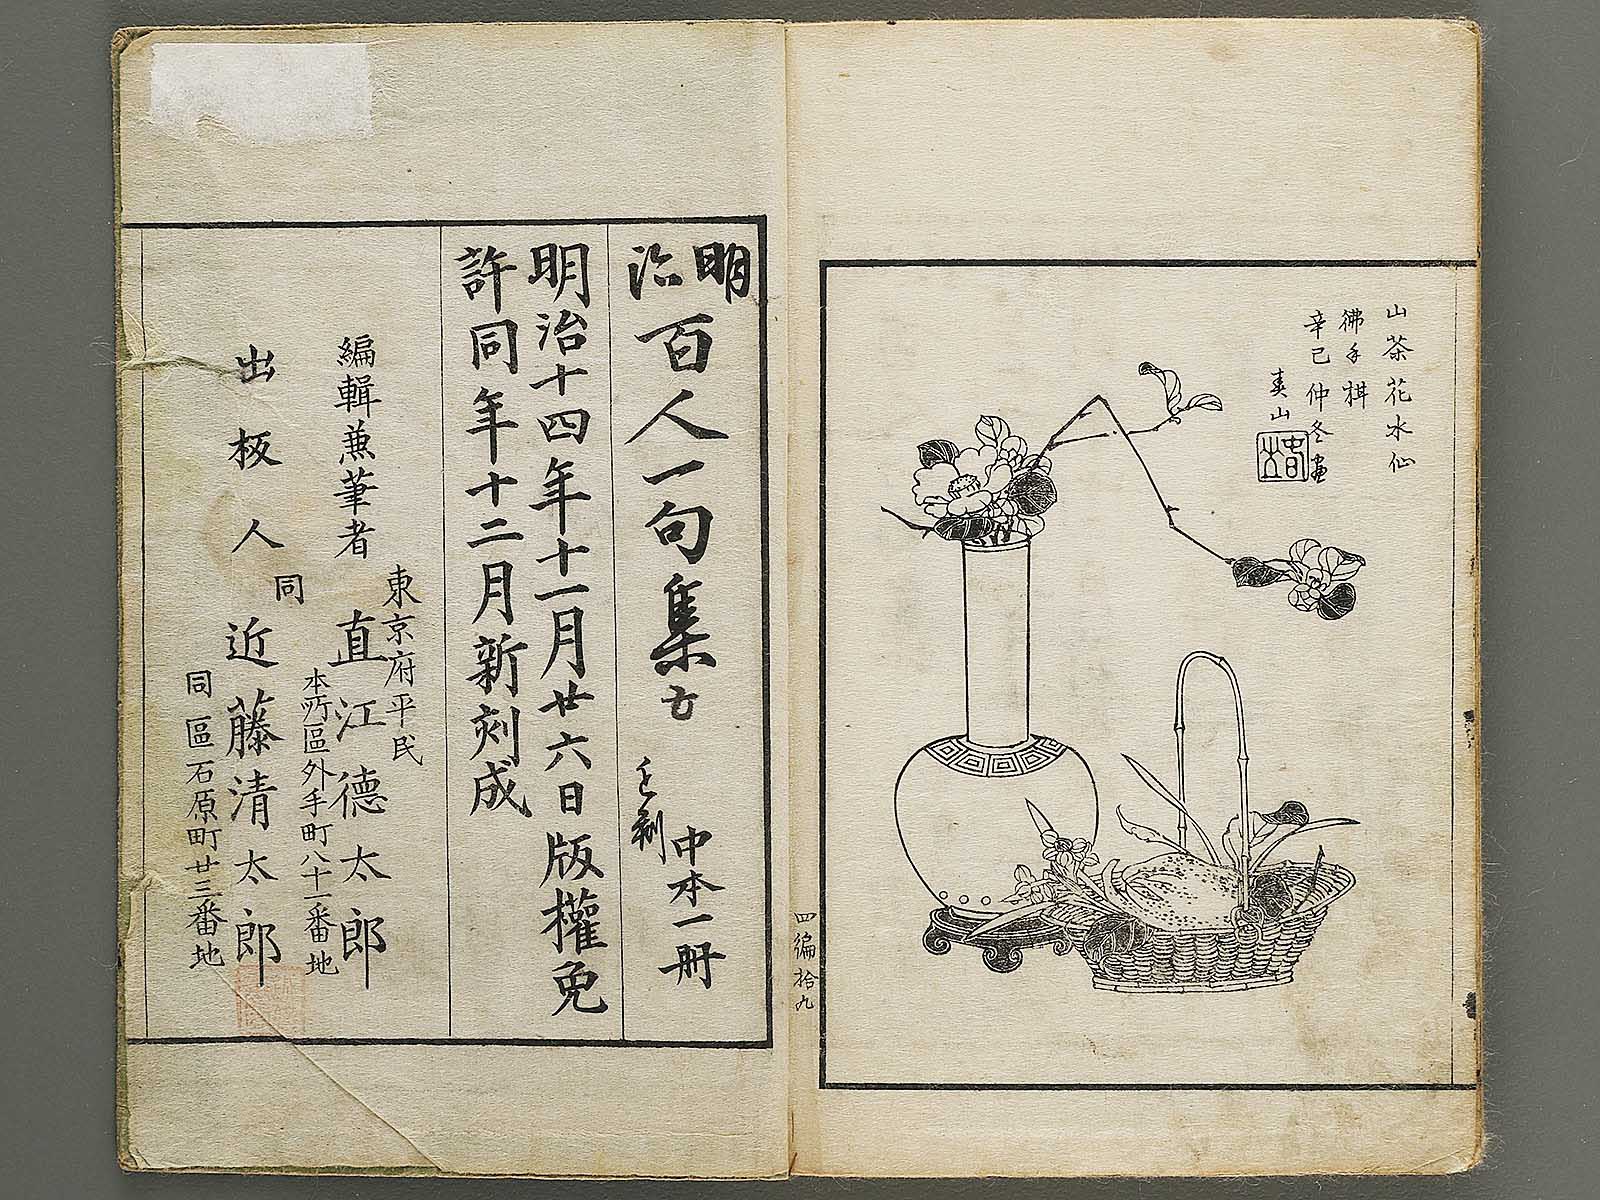 山茶花水仙
佛手柑
辛巳仲冬畫
四編拾九
明治
百人一句集
中本一冊
明治十四年十一月廿六日版權免
許同年十二月新刻成
東京府平民
編輯兼筆者 直江德太郎
本所區外手町八十一番地
同
出板人 近藤清太郎
同區石原町廿三番地